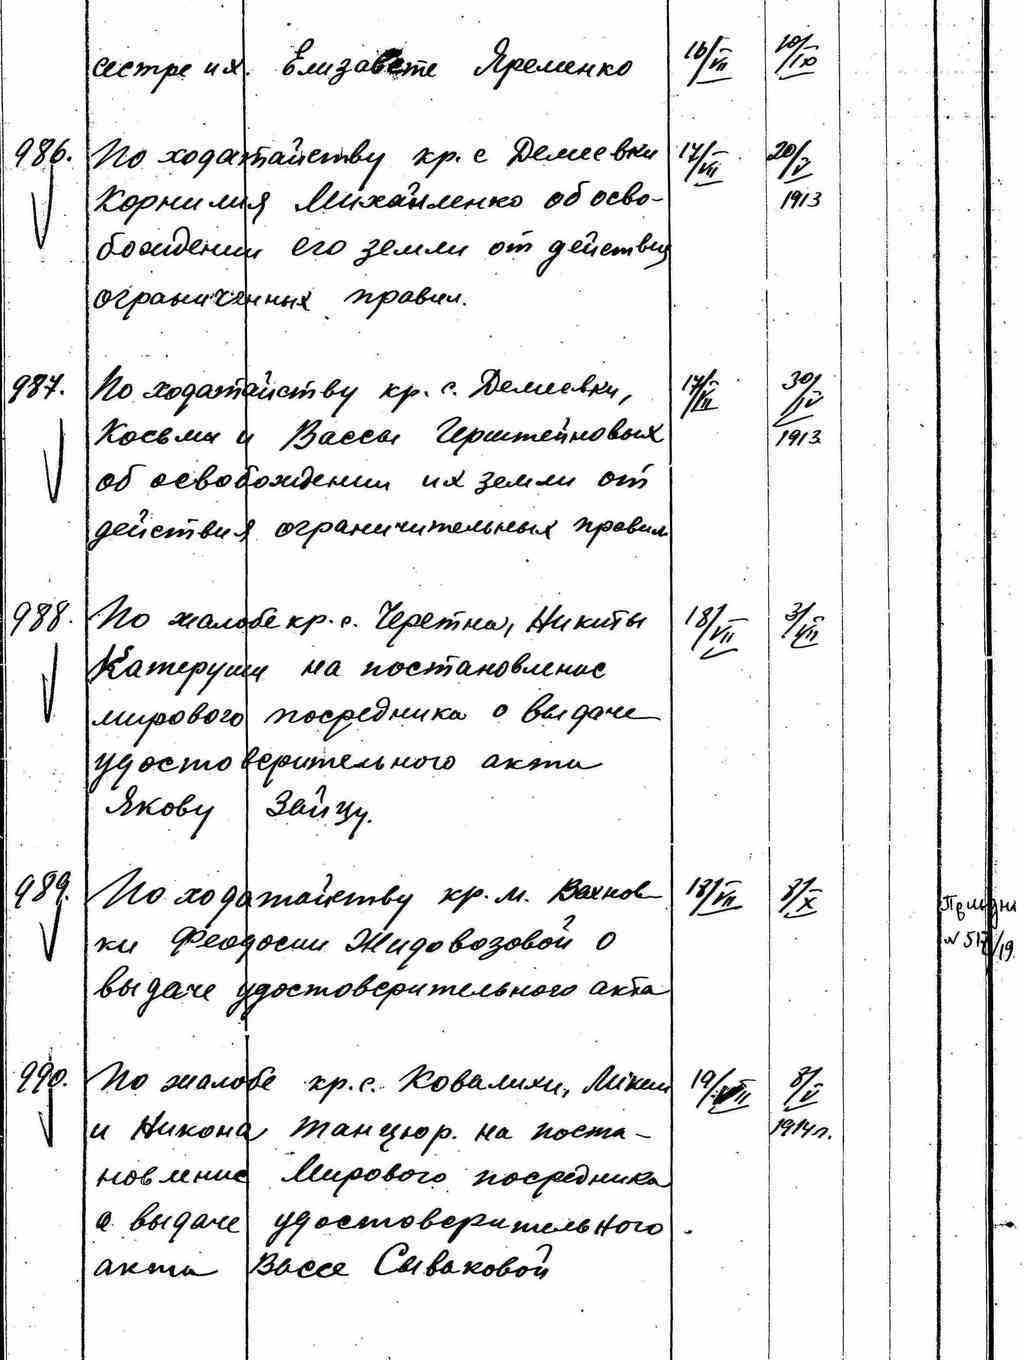 сестре их. Елизавете Яременко 16/VII 10/IX
986. По ходатайству кр. с Демиевки 17/VII 20/V
Корнилия Михайленко об осво- 1913
бождении его земли от действия
ограниченных правил.
987. По ходатайству кр. с. Демиевки, 17/VII 30/IV
Косьмы и Вассы Герштейновых 1913
об освобождении их земли от
действия ограничительных правил
988. По жалобе кр. с. Черетна, Никиты 18/VII 3/VII
Катеруши на постановление
мирового посредника о выдаче
удостоверительного акта
Якову Зайцу.
989. По ходатайству кр. м. Вахнов- 18/VII 8/X
ки Феодосии Жидовозовой о № 517/19
выдаче удостоверительного акта
990. По жалобе кр. с. Ковалихи, 19/VII 8/V
и Никона Танцюр. на поста- 1914 г.
новление Мирового посредника
о выдаче удостоверительного
акта Вассе Сываковой